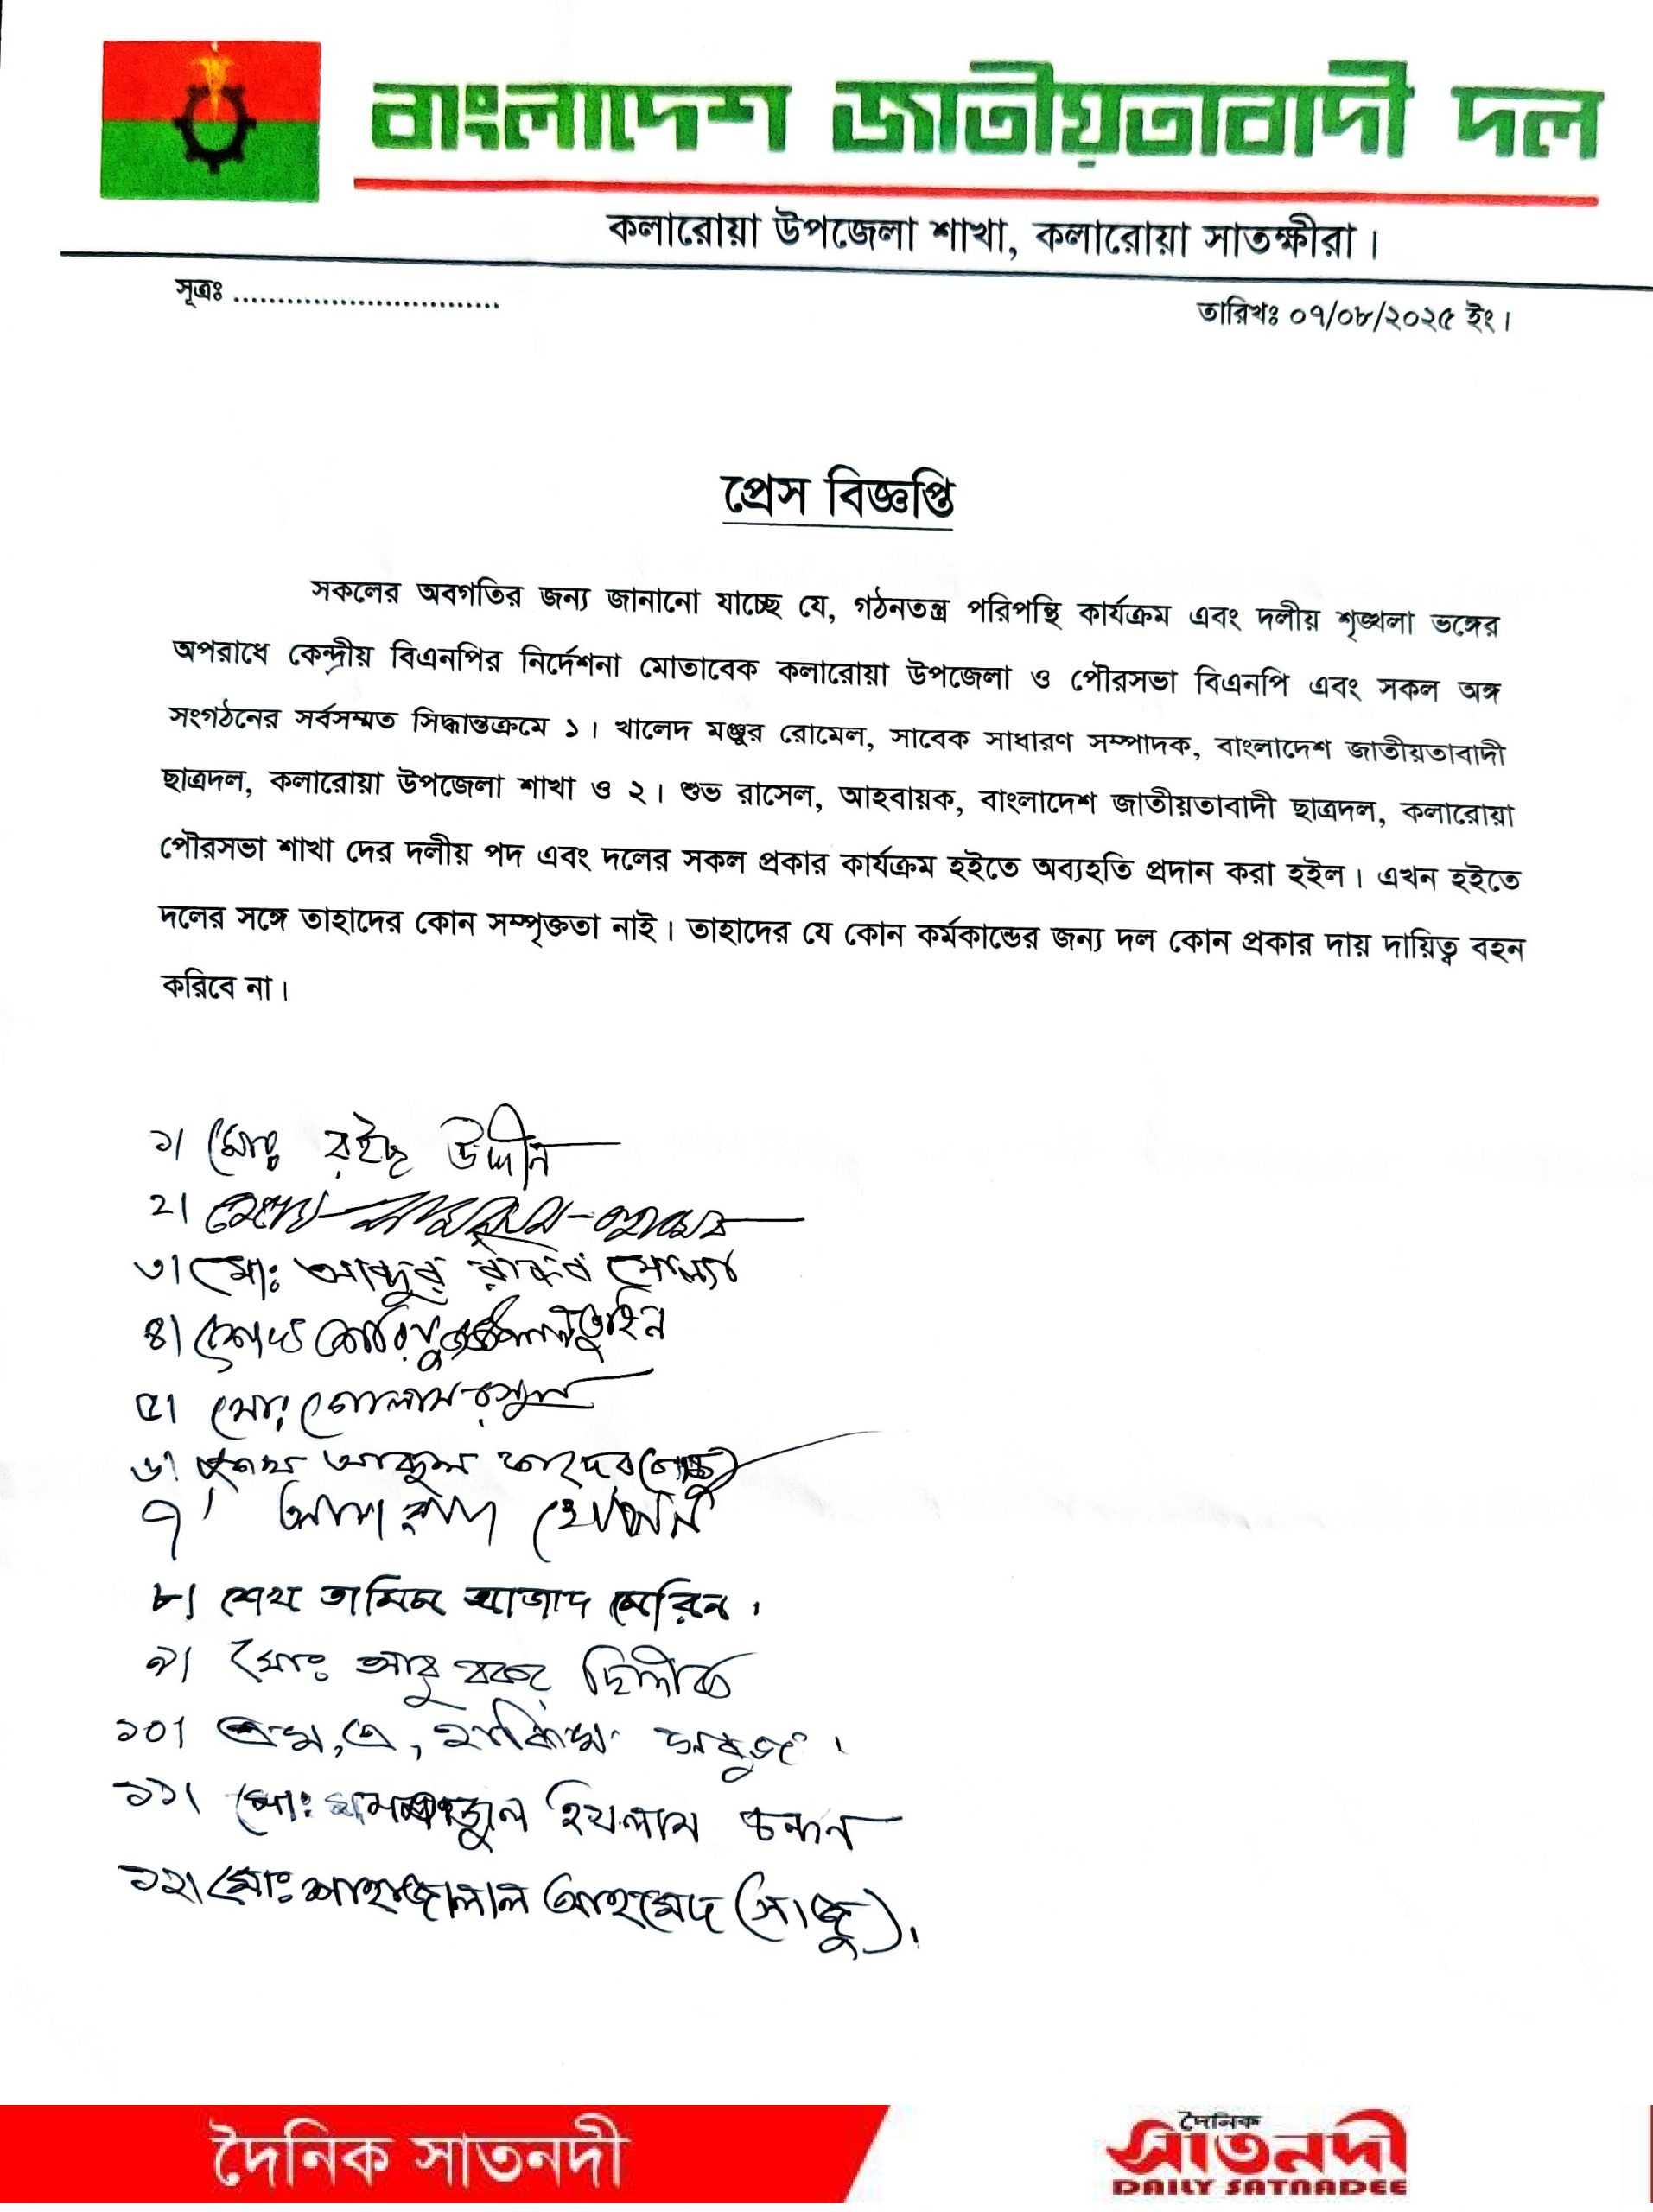 বাংলাদেশ জাতীয়তাবাদী দল
কলারোয়া উপজেলা শাখা, কলারোয়া সাতক্ষীরা।
সূত্রঃ ..............................
তারিখঃ ০৭/০৮/২০২৫ ইং।
প্রেস বিজ্ঞপ্তি
সকলের অবগতির জন্য জানানো যাচ্ছে যে, গঠনতন্ত্র পরিপন্থি কার্যক্রম এবং দলীয় শৃঙ্খলা ভঙ্গের
অপরাধে কেন্দ্রীয় বিএনপির নির্দেশনা মোতাবেক কলারোয়া উপজেলা ও পৌরসভা বিএনপি এবং সকল অঙ্গ
সংগঠনের সর্বসম্মত সিদ্ধান্তক্রমে ১। খালেদ মঞ্জুর রোমেল, সাবেক সাধারণ সম্পাদক, বাংলাদেশ জাতীয়তাবাদী
ছাত্রদল, কলারোয়া উপজেলা শাখা ও ২। শুভ রাসেল, আহবায়ক, বাংলাদেশ জাতীয়তাবাদী ছাত্রদল, কলারোয়া
পৌরসভা শাখা দের দলীয় পদ এবং দলের সকল প্রকার কার্যক্রম হইতে অব্যহতি প্রদান করা হইল। এখন হইতে
দলের সঙ্গে তাহাদের কোন সম্পৃক্ততা নাই। তাহাদের যে কোন কর্মকান্ডের জন্য দল কোন প্রকার দায় দায়িত্ব বহন
করিবে না।
১। মোঃ রইছ উদ্দীন
২।
৩। মোঃ আব্দুর রকিব মোল্যা
৪। শেখ তুহিন
৫। মোঃ গোলাম রসুল
৬। শেখ আব্দুল
৭। হোসেন
৮। শেখ তামিম আজাদ মেরিন।
৯। মোঃ আবু বকর
১০। এম, এ, হাকিম সবুজ।
১১। মোঃ ইসলাম চন্দন
১২। মোঃ শাহাজালাল আহমেদ (সাজু)।
দৈনিক সাতনদী
দৈনিক
সাতনদী
DAILY SATNADEE